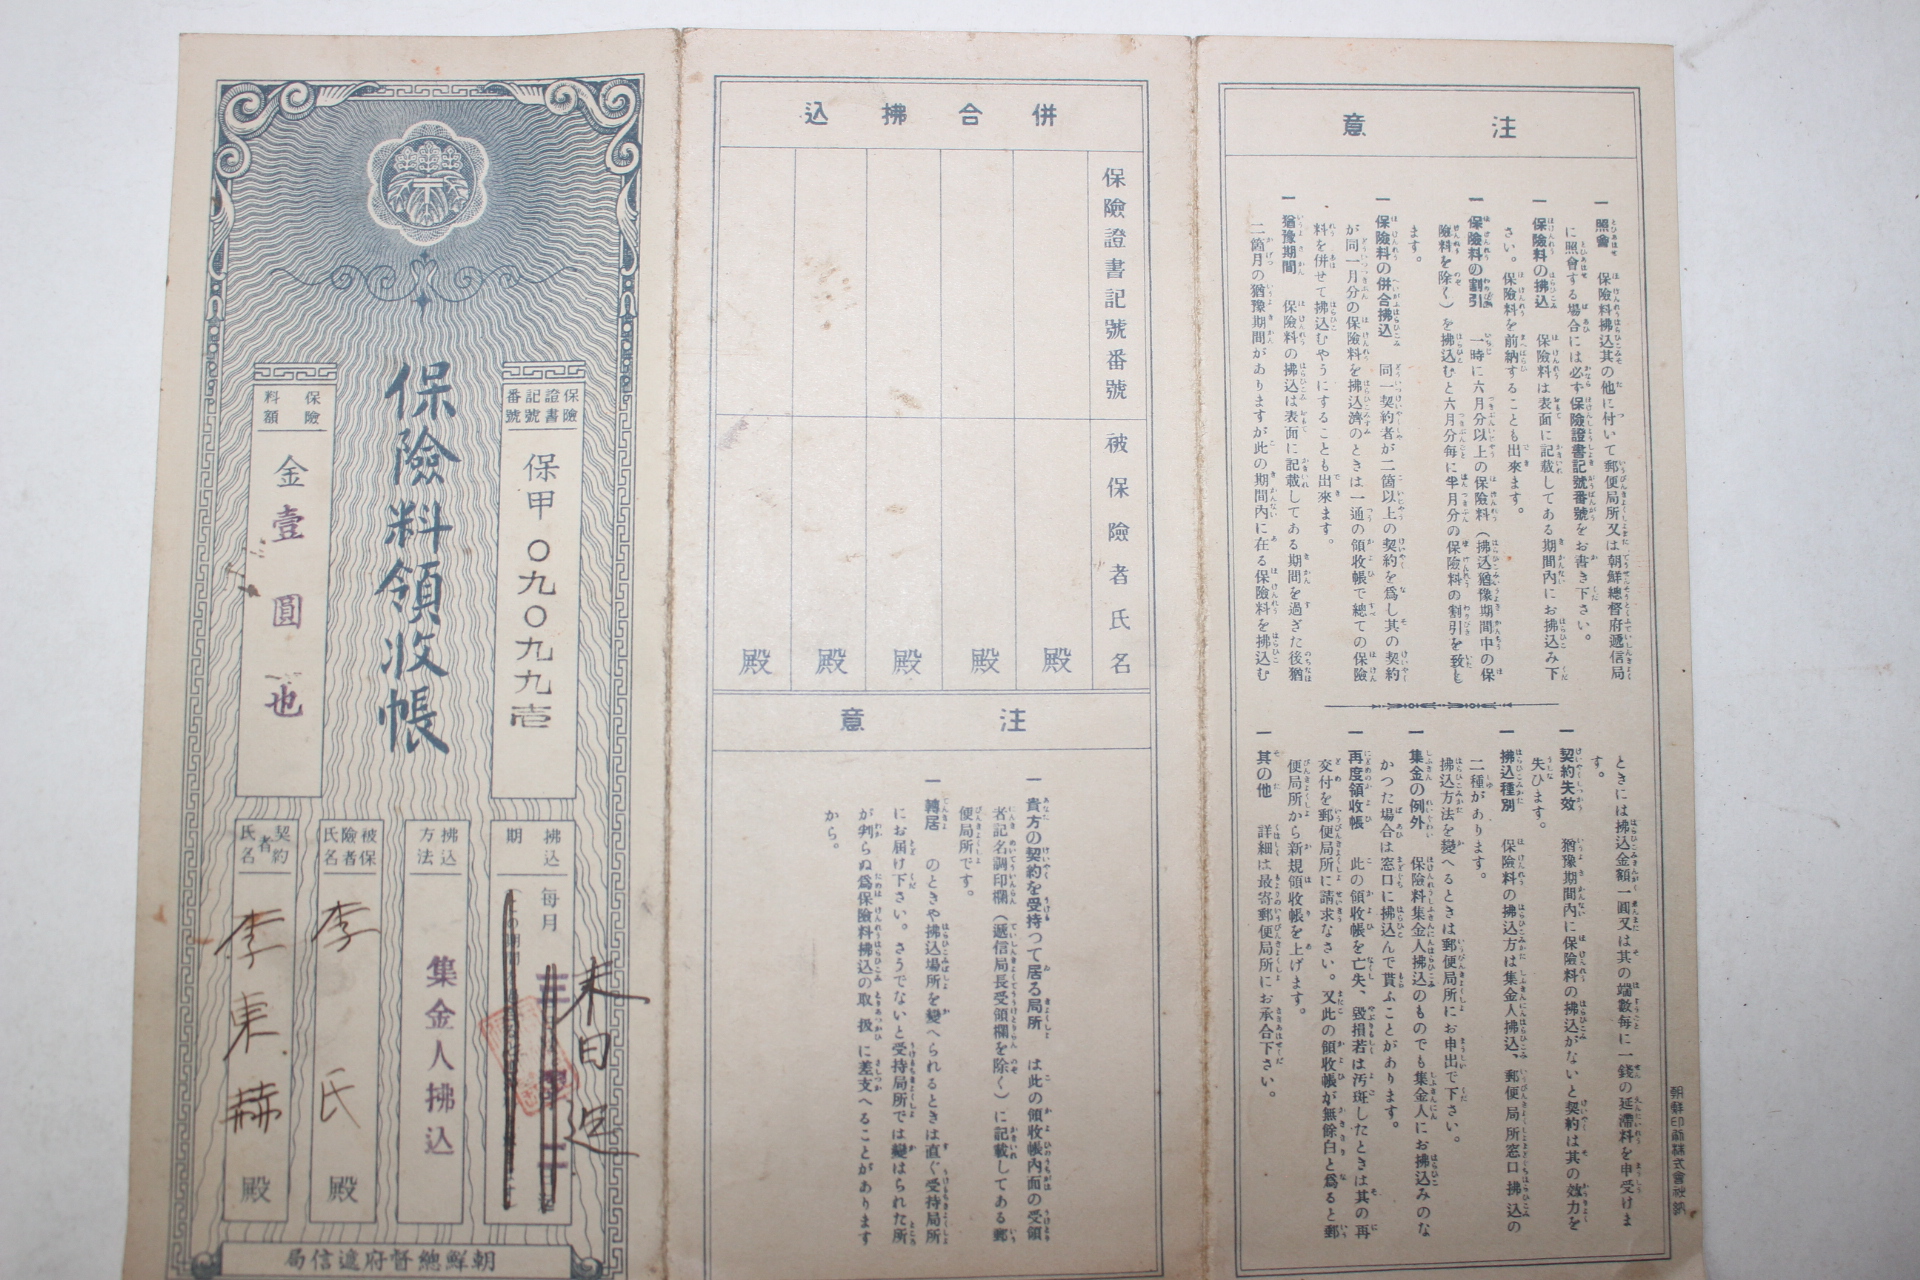 注意
一 照會 保險料拂込其の他に付いて郵便局所又は朝鮮總督府遞信局
に照會する場合には必ず保險證書記號番號をお書き下さい。
一 保險料の拂込 保險料は表面に記載してある期間內にお拂込み下
さい。保險料を前納することも出來ます。
一 保險料の割引 一時に六月分以上の保險料(拂込猶豫期間中の保
險料を除く)を拂込むと六月分每に半月分の保險料の割引を致し
ます。
一 保險料の併合拂込 同一契約者が二箇以上の契約を爲し其の契約
が同一月分の保險料を拂込濟のときは一通の領收帳で總ての保險
料を併せて拂込むやうにすることも出來ます。
一 猶豫期間 保險料の拂込は表面に記載してある期間を過ぎた後猶
二箇月の猶豫期間がありますが此の期間內に在る保險料を拂込む
ときには拂込金額一圓又は其の端數每に一錢の延滯料を申受けま
す。
一 契約失效 猶豫期間內に保險料の拂込がないと契約は其の效力を
失ひます。
一 拂込種別 保險料の拂込方は集金人拂込、郵便局所窓口拂込の
二種があります。
拂込方法を變へるときは郵便局所にお申出で下さい。
一 集金の例外 保險料集金人拂込のものでも集金人にお拂込みのな
かつた場合は窓口に拂込んで貰ふことがあります。
一 再度領收帳 此の領收帳を亡失、毀損若は汚斑したときは其の再
交付を郵便局所に請求なさい。又此の領收帳が無餘白と爲ると郵
便局所から新規領收帳を上げます。
一 其の他 詳細は最寄郵便局所にお承合下さい。
朝鮮印刷株式會社納
併合拂込
保險證書記號番號
被保險者氏名
殿
殿
殿
殿
殿
注意
一 貴方の契約を受持つて居る局所 は此の領收帳內面の受領
者記名調印欄(遞信局長受領欄を除く)に記載してある郵
便局所です。
一 轉居 のときや拂込場所を變へられるときは直ぐ受持局所
にお届け下さい。さうでないと受持局所では變はられた所
が判らぬ爲保險料拂込の取扱に差支へることがあります
から。
保險料領收帳
保險證書記號番號
保甲〇九〇九九壱
保險料額
金壹圓也
拂込期
每月
末日迄
拂込方法
集金人拂込
被保險者氏名
李氏殿
契約者氏名
李東赫殿
朝鮮總督府遞信局